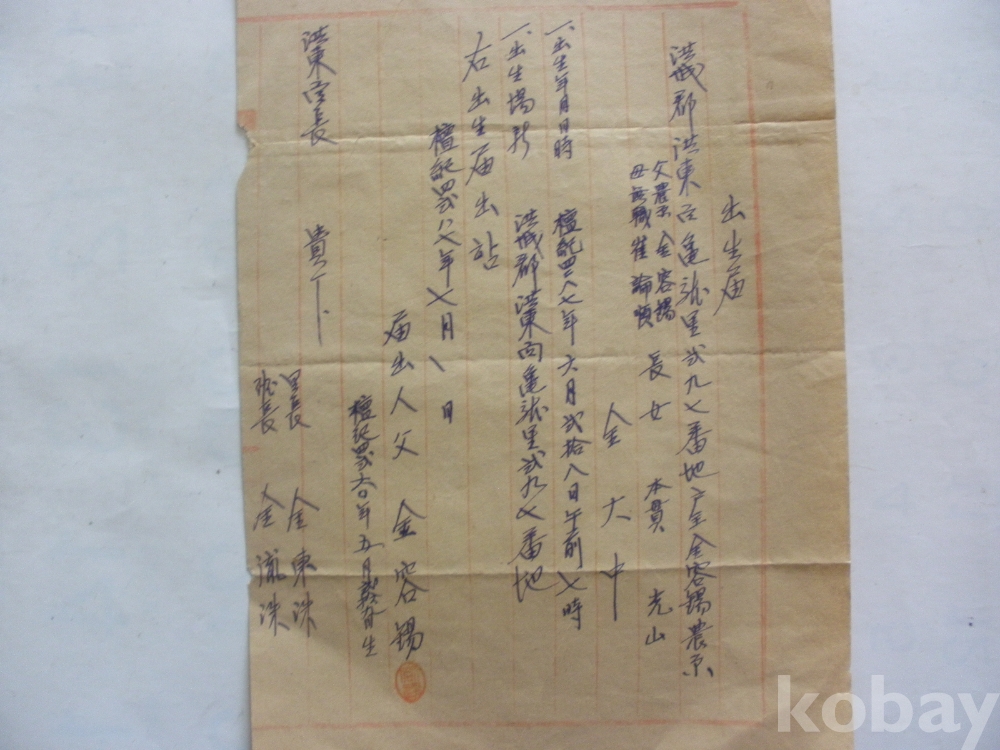 出生届
洪城郡洪東面龜龍里弐九七番地戸主金容錫農業
父農業金容錫
母無職崔 順
長女 本貫 光山
金大中
一、出生年月日時 檀紀四二八七年六月弐拾八日午前七時
一、出生場所 洪城郡洪東面龜龍里弐九七番地
右出生届出함
檀紀四弐八七年七月 日
届出人父 金容錫
檀紀四弐六 年五月 生
洪東面長 貴下
里長 金東洙
班長 金 洙
kobay